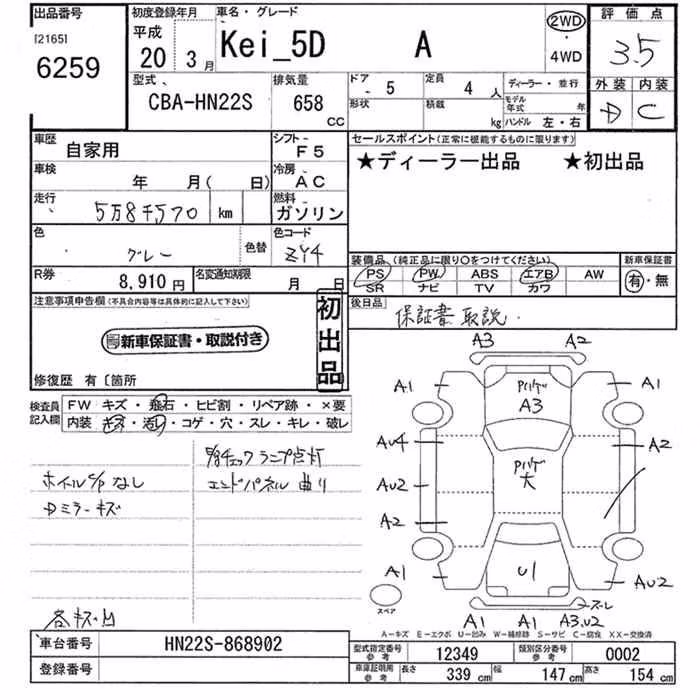 出品番号
[2165]
6259
初度登録年月
平成
20年 3月
車名・グレード
Kei_5D A
2WD
・
4WD
評価点
3.5
外装 内装
D C
型式
CBA-HN22S
排気量
658
CC
ドア
- 5
定員
4 人
形状
積載
kg
ディーラー・並行
モデル年式 年
ハンドル 左・右
車歴
自家用
シフト
F5
車検
年 月( 日)
冷房
AC
走行
5万8千570 km
燃料
ガソリン
色
グレー
色替
色コード
ZY4
R券
8,910円
名変通知期限
月 日
セールスポイント(正常に機能するものに限ります)
★ディーラー出品 ★初出品
装備品(純正品に限り○をつけてください)
PS PW ABS エアB AW
SR ナビ TV カワ
新車保証書
有・無
後日品
保証書 取説.
注意事項申告欄(不具合内容等は具体的に記入して下さい)
新車保証書・取説付き
初出品
修復歴 有〔箇所
検査員記入欄
FW キズ・飛石・ヒビ割・リペア跡・×要
内装 キズ・汚レ・コゲ・穴・スレ・キレ・破レ
チェックランプ点灯
ホイールC/Pなし
エンドパネル曲り
Dミラーキズ
各キズ・凹
A3 A2
A1 A1
A3
AU4 A2
大
AU2
A2
A1 U1 AU2
スペア
スレ
A1 A1 A3.U2
A-キズ E-エクボ U-凹み W-補修跡 S-サビ C-腐食 XX-交換済
車台番号
HN22S-868902
登録番号
型式指定番号 参考
12349
類別区分番号 参考
0002
車庫証明用 参考
長さ 339 cm 幅 147 cm 高さ 154 cm